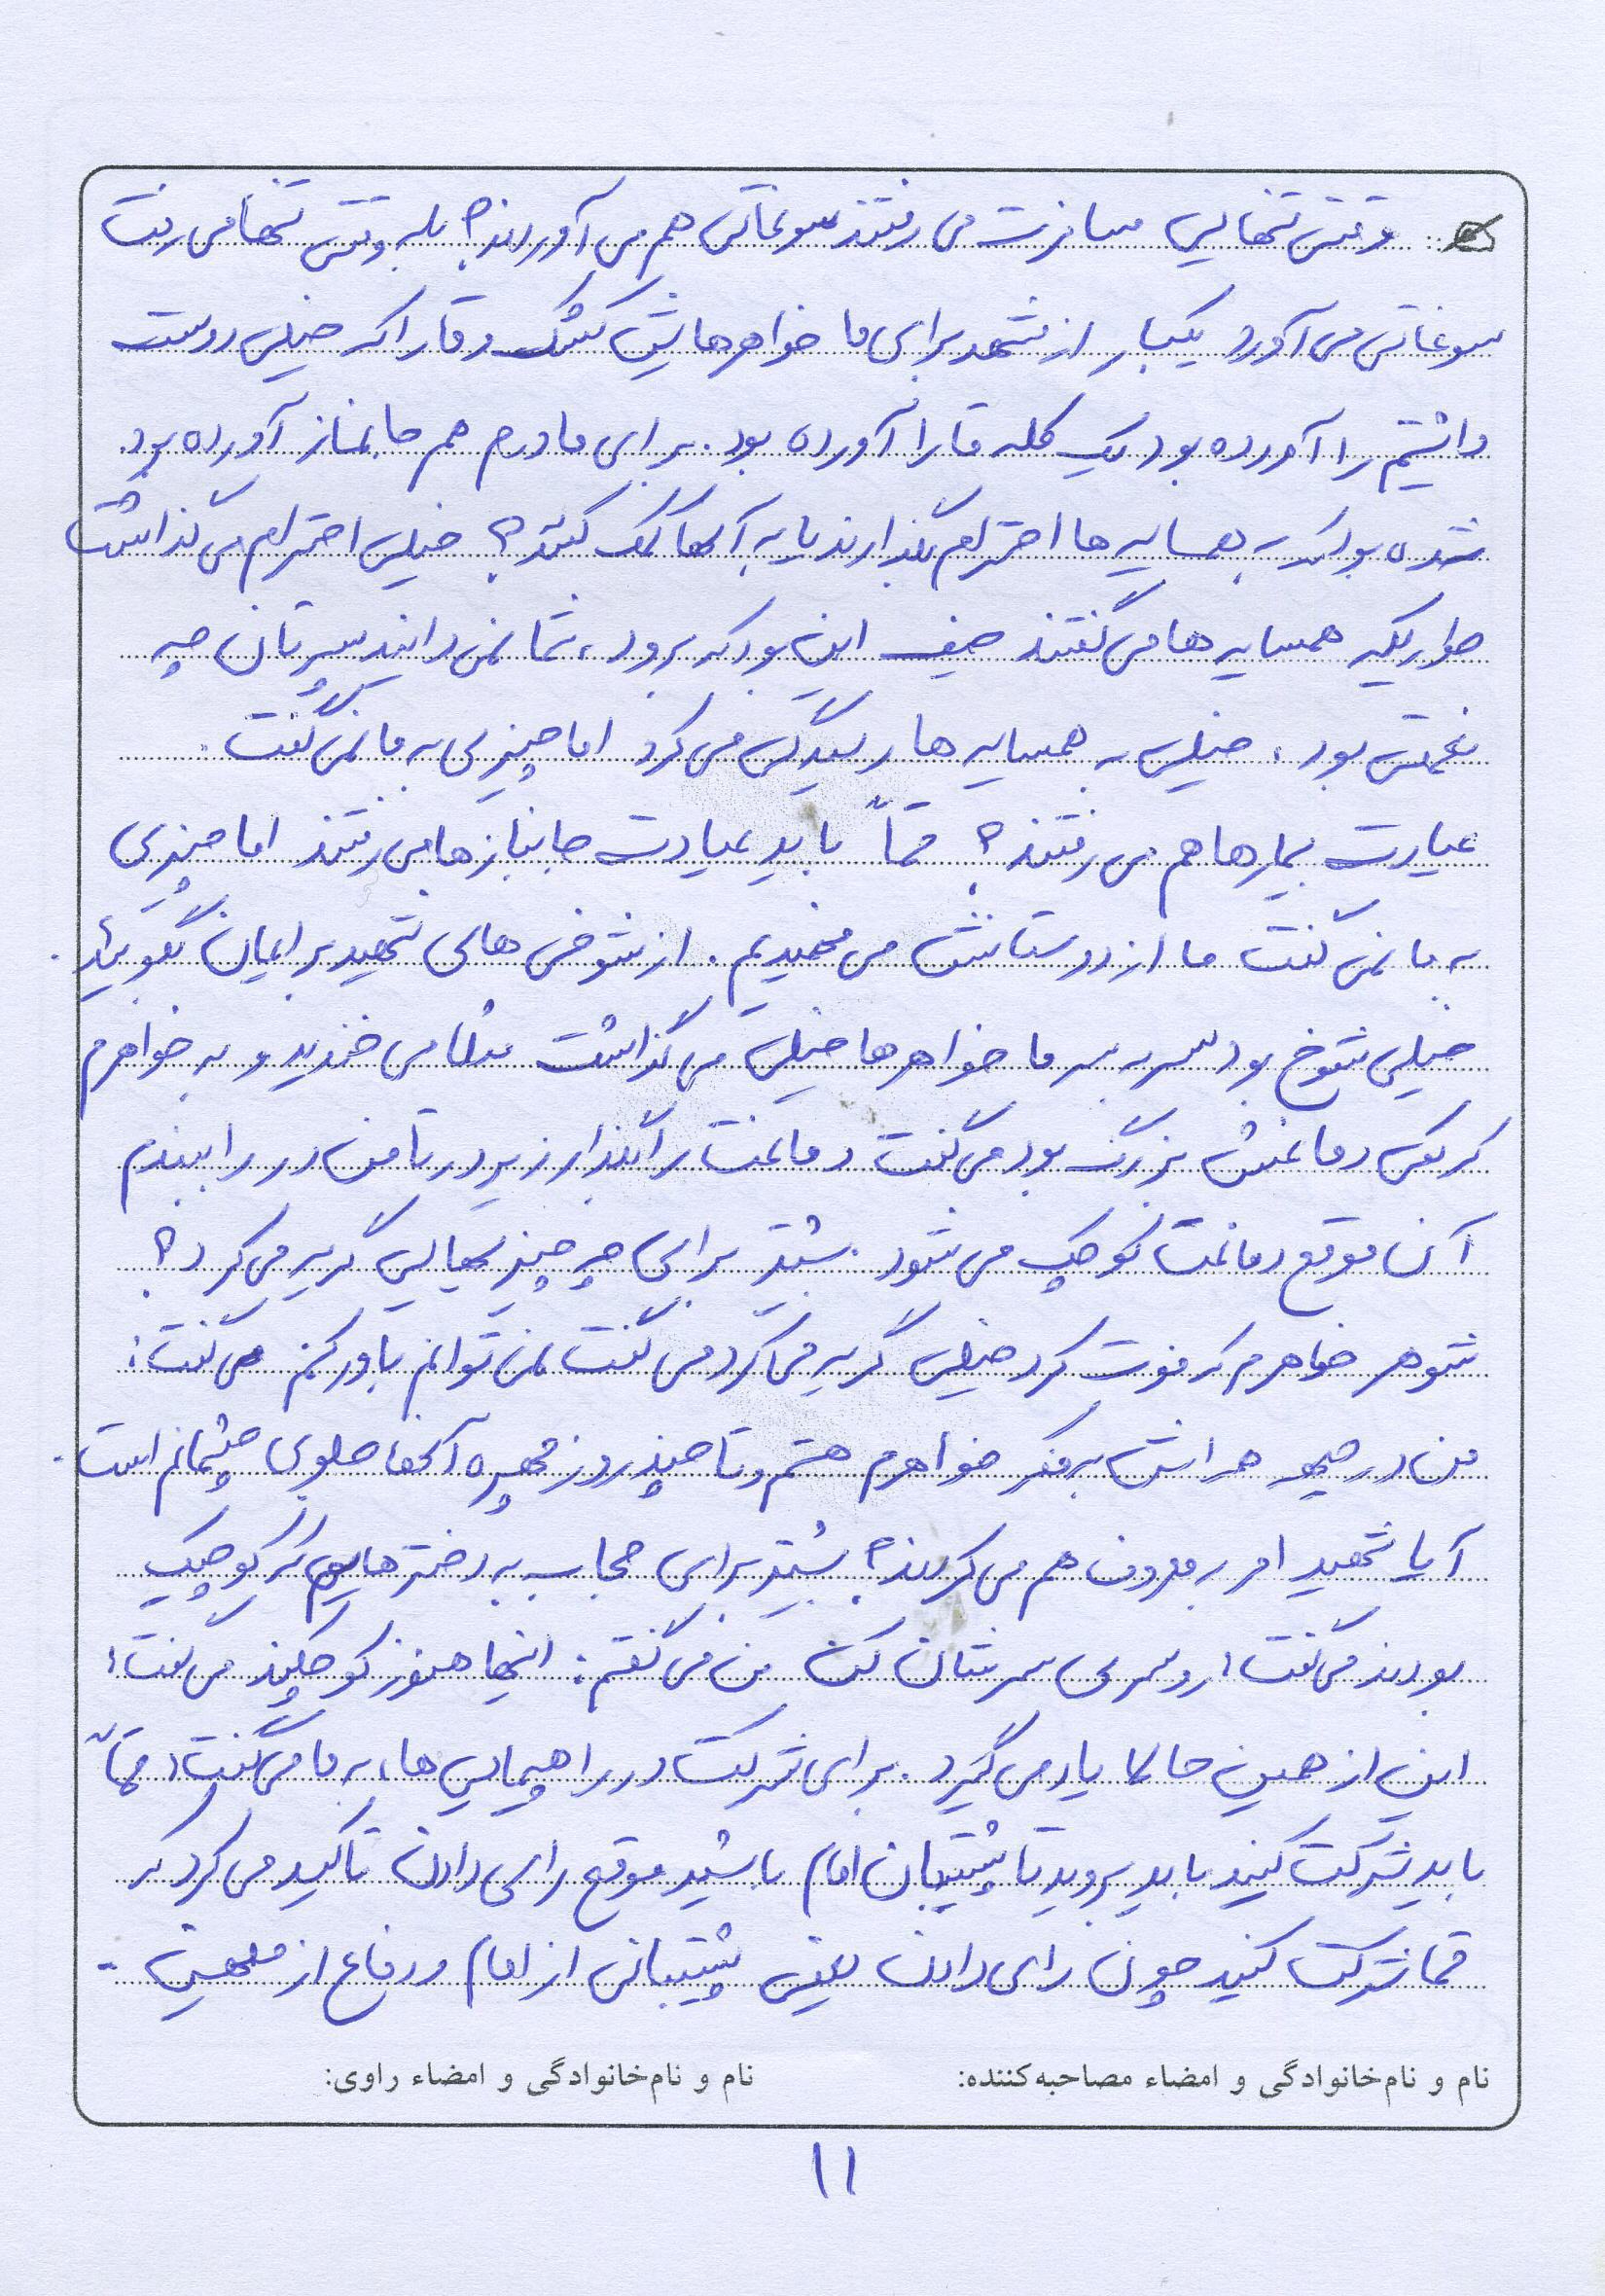 وقتی تنهایی مسافرت می رفتند سوغاتی هم می آوردند؟ بله وقتی تنها می رفت
سوغاتی می آورد یکبار از مشهد برای ما خواهرهایش کشک و قارا که خیلی دوست
داشتیم را آورده بود یک کله قارا آورده بود. برای مادرم هم جانماز آورده بود.
شده بود که به همسایه ها احترام بگذارند یا به آنها کمک کنند؟ خیلی احترام می گذاشت
طوریکه همسایه ها می گفتند حیف این بود که برود، شما نمی دانید پسرتان چه
نعمتی بود، خیلی به همسایه ها رسیدگی می کرد اما چیزی به ما نمی گفت.
عیادت بیمارها هم می رفتند؟ حتماً باید عیادت جانبازها می رفتند اما چیزی
به ما نمی گفت ما از دوستانش می فهمیدیم. از شوخی های شهید برایمان بگویید.
خیلی شوخ بود سر به سر ما خواهرها خیلی می گذاشت مثلا می خندید و به خواهرم
که یکی دماغش بزرگ بود می گفت دماغت را بگذار زیر در تا من در را ببندم
آن موقع دماغت کوچک می شود. بیشتر برای چه چیزهایی گریه می کرد؟
شوهر خواهرم که فوت کرد خیلی گریه می کرد می گفت نمی توانم باور کنم می گفت:
من در جبهه همه اش به فکر خواهرم هستم و تا چند روز چهره آنها جلوی چشمانم است.
آیا شهید امر به معروف هم می کردند؟ بیشتر برای حجاب به دخترهایم که کوچک
بودند می گفت: روسری سرشان کن من می گفتم: اینها هنوز کوچکند می گفت:
این از همین حالا یاد می گیرد. برای شرکت در راهپیمایی ها، به ما می گفت: حتماً
باید شرکت کنید باید بروید تا پشتیبان امام باشید موقع رای دادن تاکید می کرد که
حتما شرکت کنید چون رای دادن یعنی پشتیبانی از امام و دفاع از میهن -
نام و نام‌خانوادگی و امضاء مصاحبه‌کننده: نام و نام‌خانوادگی و امضاء راوی:
۱۱